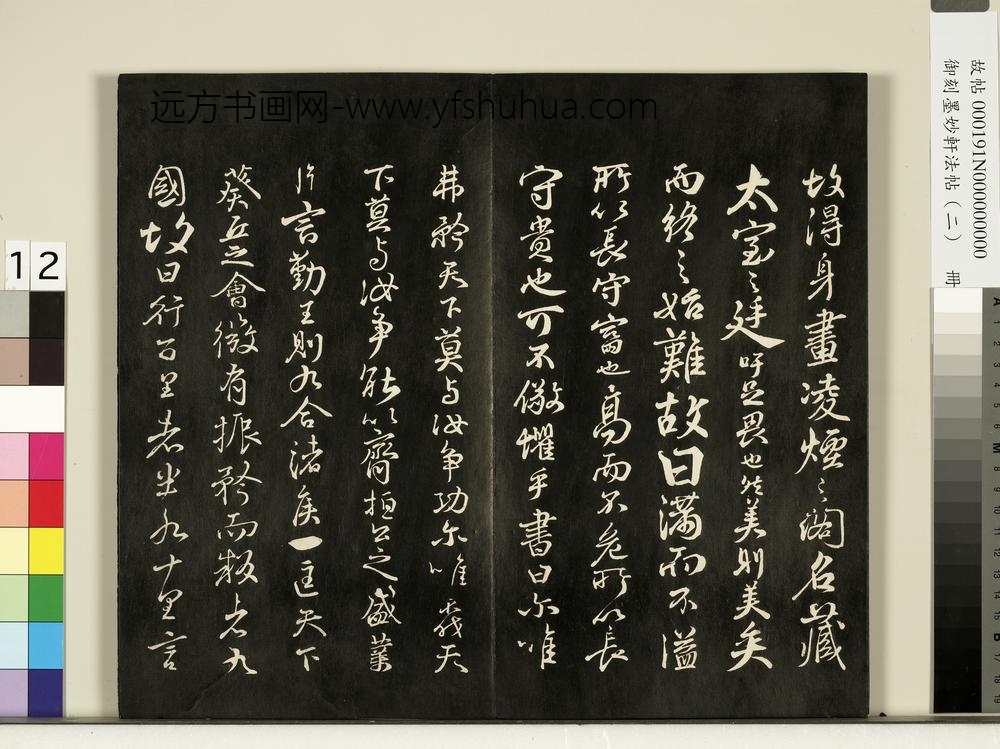 故帖 000191N000000000
御刻墨妙軒法帖（二） 冊
远方书画网-www.yfshuhua.com
故得身畫凌煙之閣名藏
太室之廷吁足畏也然美則美矣
而終之始難故曰滿而不溢
所以長守富也高而不危所以長
守貴也可不儆懼乎書曰尔唯
弗矜天下莫与汝争功尔唯弗
下莫与汝争能以齊桓公之盛業
片言勤王則九合諸侯一匡天下
葵丘之會微有振矜而叛者九
國故曰行百里者半九十里言
12